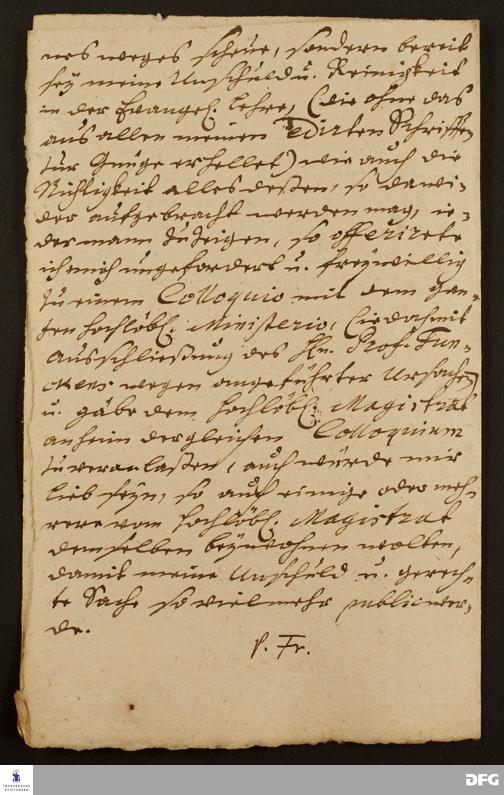 nes weges scheue, sondern bereit
sey meine Unschuld u. Reinigkeit
in der Evangel. Lehre, (die ohne das
aus allen meinen Edirten Schrifften
zur Gnüge erhellet) wie auch die
Nichtigkeit alles deßen, so dawi-
der aufgebracht werden mag, ie-
dermann zu zeigen, so offerirete
ich mich ungefordert u. freywillig
zu einem Colloquio mit dem gan-
zen hochlöbl. Ministerio, (iedoch mit
Ausschließung des Hn. Prof. Fun-
ckens wegen angeführter Ursachen)
u. gäbe dem hochlöbl. Magistrat
anheim dergleichen Colloquium
zu veranlaßen, auch würde mir
lieb seyn, so auch einige oder meh-
rere vom hochlöbl. Magistrat
demselben beywohnen wolten,
damit meine Unschuld u. gerech-
te Sache so viel mehr public wer-
de.
p. Fr.
FRANCKESCHE
STIFTUNGEN
DFG